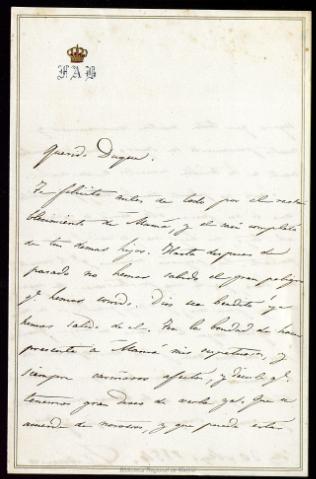 FAB
Querido Duque.
Te felicito antes de todo por el resta
blecimiento de Mamá, y el mas completo
de tus demas hijos. Hasta despues de
pasado no hemos sabido el gran peligro
q.e hemos corrido. Dios sea bendito q.e
hemos salido de el. Ten la bondad de hacer
presente a Mamá mis respetuosos, y
siempre cariñosos afectos, y decirle q.e
tenemos gran deseo de verla ya. Que se
acuerde de nosotros, y que puede estár
Biblioteca Regional de Madrid